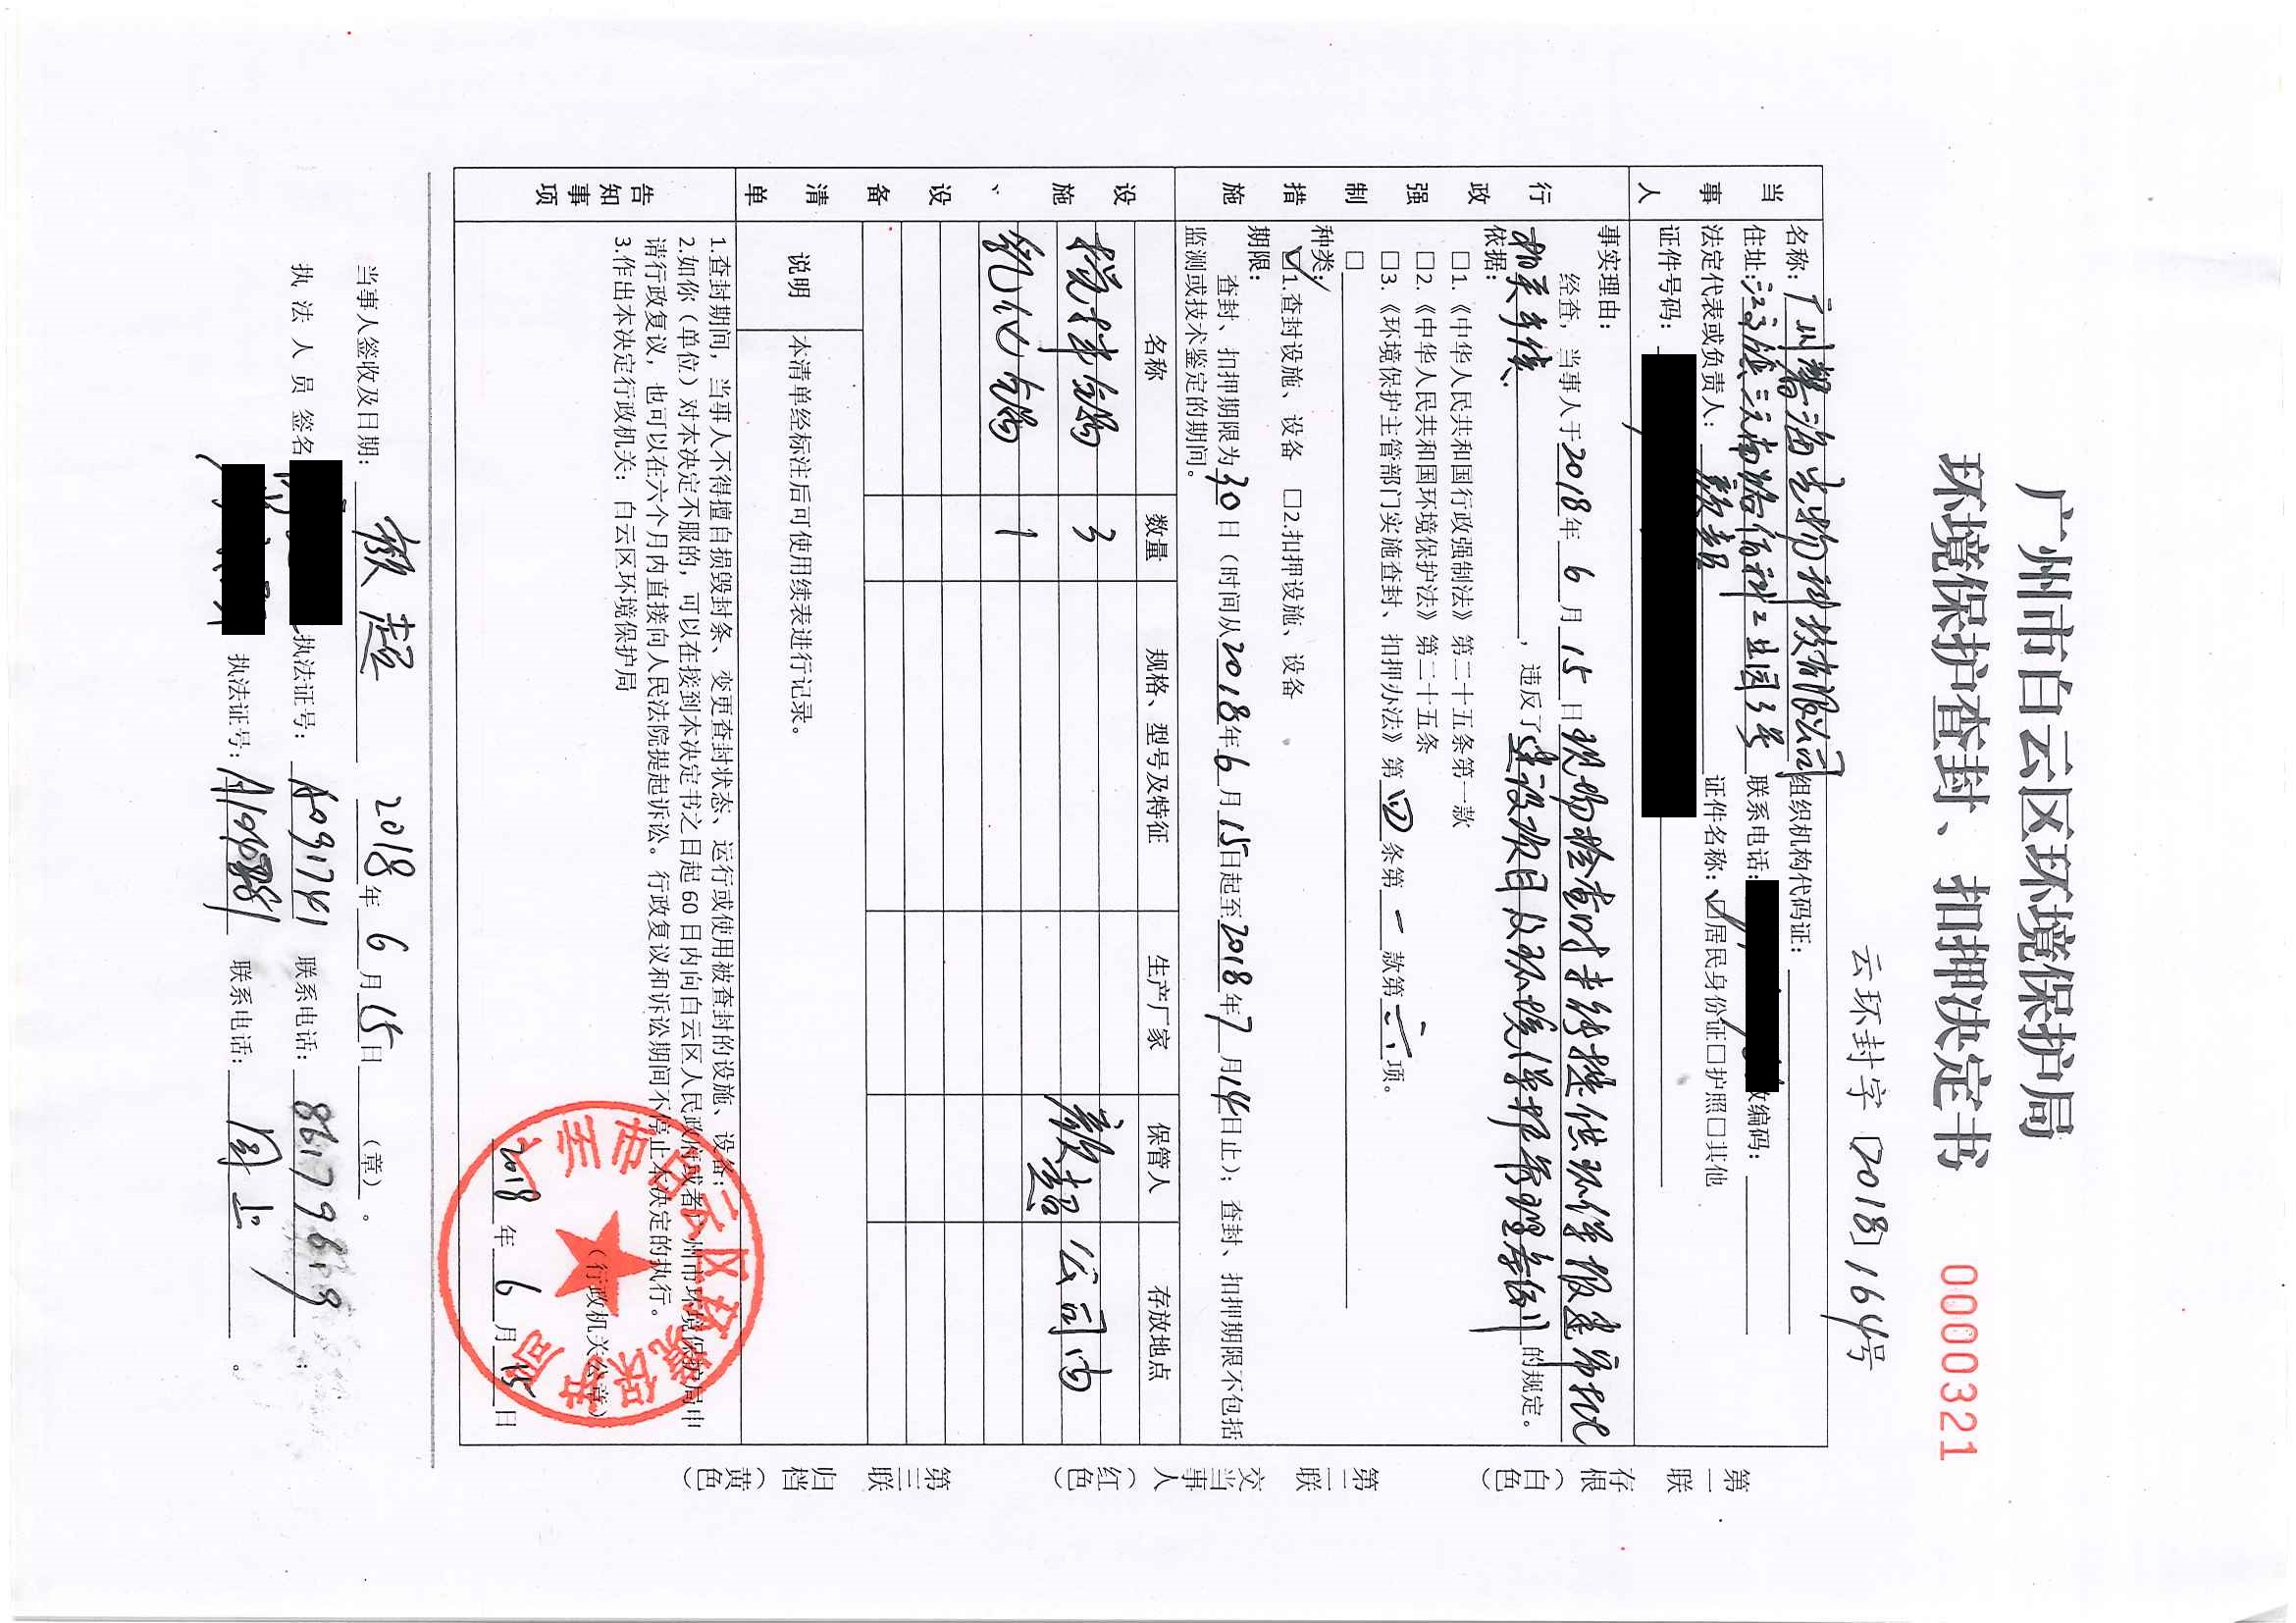 广州市白云区环境保护局
环境保护查封、扣押决定书 0000321
云环封字〔2018〕164号
当事人
名称：广州 生物科技有限公司 组织机构代码证：
住址：江高镇 工业园3号 联系电话： 编码：
法定代表或负责人： 证件名称：☑居民身份证□护照□其他
证件号码：
行政强制措施
事实理由：
经查，当事人于2018年6月15日现场检查时未能提供环保报建审批
相关手续，违反了建设项目 环境保护管理条例的规定。
依据：
□1.《中华人民共和国行政强制法》第二十五条第一款
□2.《中华人民共和国环境保护法》第二十五条
□3.《环境保护主管部门实施查封、扣押办法》第四条第一款第 项。
□
种类：
☑1.查封设施、设备 □2.扣押设施、设备
期限：
查封、扣押期限为30日（时间从2018年6月15日起至2018年7月14日止）；查封、扣押期限不包括
监测或技术鉴定的期间。
设施、设备清单
名称 数量 规格、型号及特征 生产厂家 保管人 存放地点
搅拌 3 公司内
乳化 1
说明 本清单经标注后可使用续表进行记录。
告知事项
1.查封期间，当事人不得擅自损毁封条、变更查封状态、运行或使用被查封的设施、设备；
2.如你（单位）对本决定不服的，可以在接到本决定书之日起60日内向白云区人民政府或者广州市环境保护局申
请行政复议，也可以在六个月内直接向人民法院提起诉讼。行政复议和诉讼期间不停止本决定的执行。
3.作出本决定行政机关：白云区环境保护局
（行政机关公章）
2018年6月15日
广州市白云区环境保护局
当事人签收及日期： 超 2018年6月15日（章）。
执法人员签名 执法证号：A091741 联系电话： ；
执法证号： 联系电话：同上。
第一联 存根（白色）
第二联 交当事人（红色）
第三联 归档（黄色）